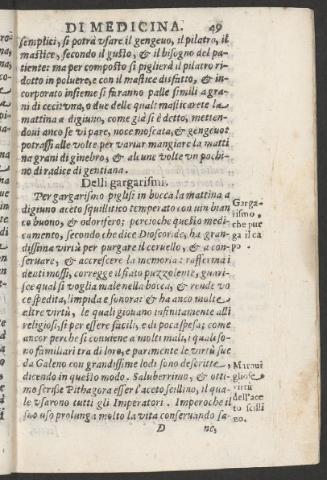 DI MEDICINA. 49
semplici, si potrà vsare il gengeuo, il pilatro, il
mastice, secondo il gusto, & il bisogno del pa-
tiente: ma per composto si piglierà il pilatro ri-
dotto in poluere, e con il mastice disfatto, & in-
corporato insieme si faranno palle simili a gra-
ni di ceci vna, o due delle quali masticarete la
mattina a digiuno, come già si è detto, metten-
doui anco se vi pare, noce moscata, & gengeuo:
potrassi alle volte per variar mangiare la matti
na grani di ginebro, & alcune volte vn pochi-
no di radice di gentiana.
Delli gargarismi.
Per gargarismo piglisi in bocca la mattina a
digiuno aceto squillitico temperato con vin bian
co buono, & odorifero; percioche questo medi-
camento, secondo che dice Dioscoride, ha gran-
dissima virtù per purgare il ceruello, & a con-
seruare, & accrescere la memoria: rafferma i
denti mossi, corregge il fiato puzzolente, guari-
sce qual si voglia male nella bocca, & rende vo
ce spedita, limpida e sonora: & ha anco molte
altre virtù, le quali giouano infinitamente alli
religiosi, sì per essere facili, e di poca spesa; come
ancor perche si conuiene a molti mali, quali so-
no familiari tra di loro, e parimente le virtù sue
da Galeno con grandissime lodi sono descritte
dicendo in questo modo. Saluberrimo, & otti-
mo scrisse Pithagora esser l'aceto scillino, il qua-
le vsarono tutti gli Imperatori. Imperoche il
suo vso prolunga molto la vita conseruando sa-
D ne,
Garga-
rismo,
che pur
ga il ca
po.
Maraui
gliose
virtù
dell'ace
to scilli
no.